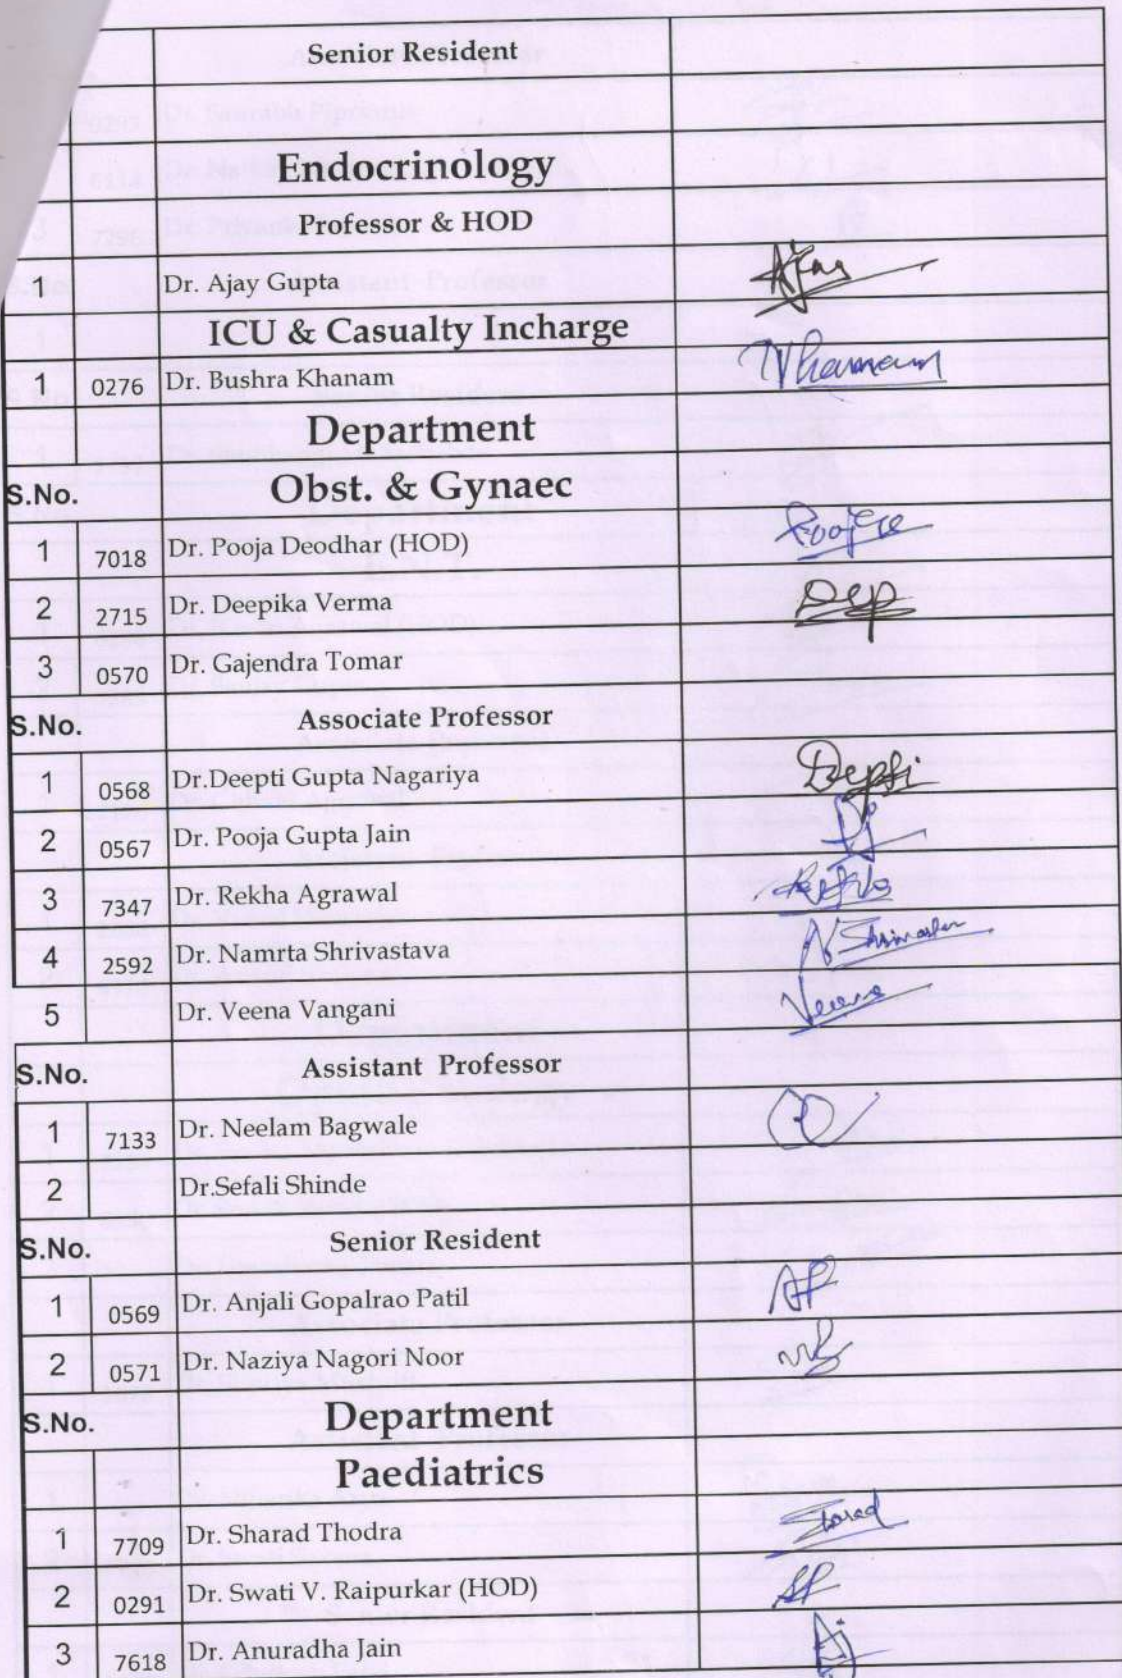 Senior Resident
Endocrinology
Professor & HOD
1 Dr. Ajay Gupta Ajay
ICU & Casualty Incharge
1 0276 Dr. Bushra Khanam Khanam
Department
S.No. Obst. & Gynaec
1 7018 Dr. Pooja Deodhar (HOD) Pooja
2 2715 Dr. Deepika Verma Deep
3 0570 Dr. Gajendra Tomar
S.No. Associate Professor
1 0568 Dr.Deepti Gupta Nagariya Deepti
2 0567 Dr. Pooja Gupta Jain
3 7347 Dr. Rekha Agrawal Rekha
4 2592 Dr. Namrta Shrivastava
5 Dr. Veena Vangani Veena
S.No. Assistant Professor
1 7133 Dr. Neelam Bagwale
2 Dr.Sefali Shinde
S.No. Senior Resident
1 0569 Dr. Anjali Gopalrao Patil AP
2 0571 Dr. Naziya Nagori Noor
S.No. Department
Paediatrics
1 7709 Dr. Sharad Thodra Sharad
2 0291 Dr. Swati V. Raipurkar (HOD) SR
3 7618 Dr. Anuradha Jain AJ